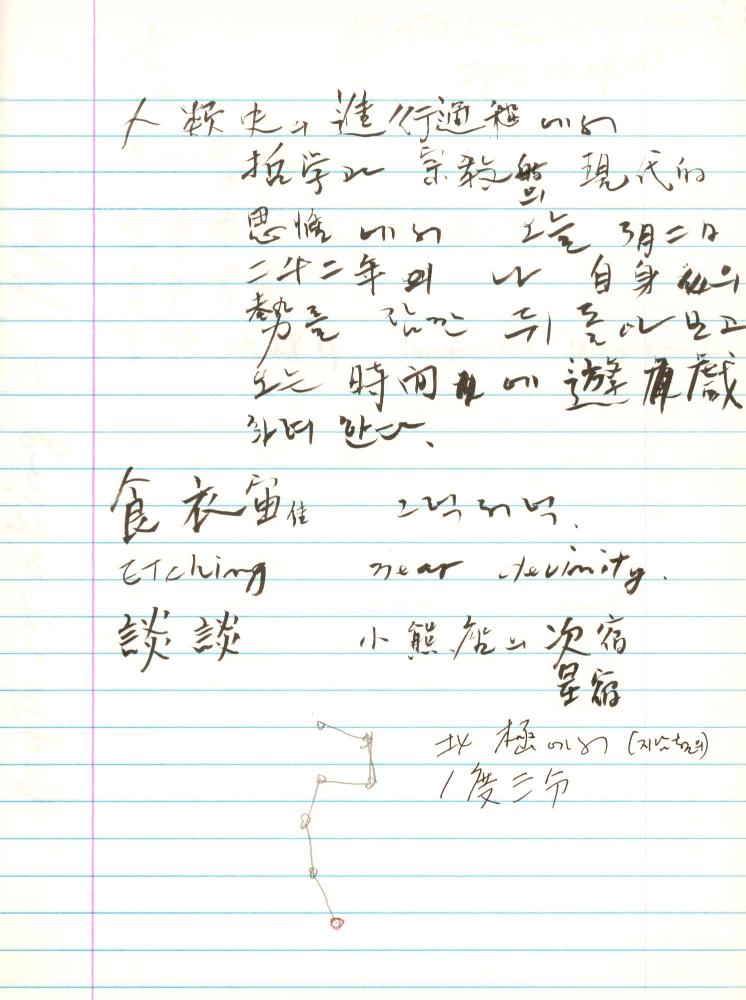 人類史의 進行過程에서
哲学과 宗教의 現代的
思惟에서 오늘 3月二日
二千二年의 나 自身의
勢를 잠깐 뒤돌아보고
오는 時間에 遊戱
하려 한다.
食衣宙住 그럭저럭.
ETching near devinity.
談談 小熊座의 次宿
星宿
北極에서 (지상위의)
1度三分